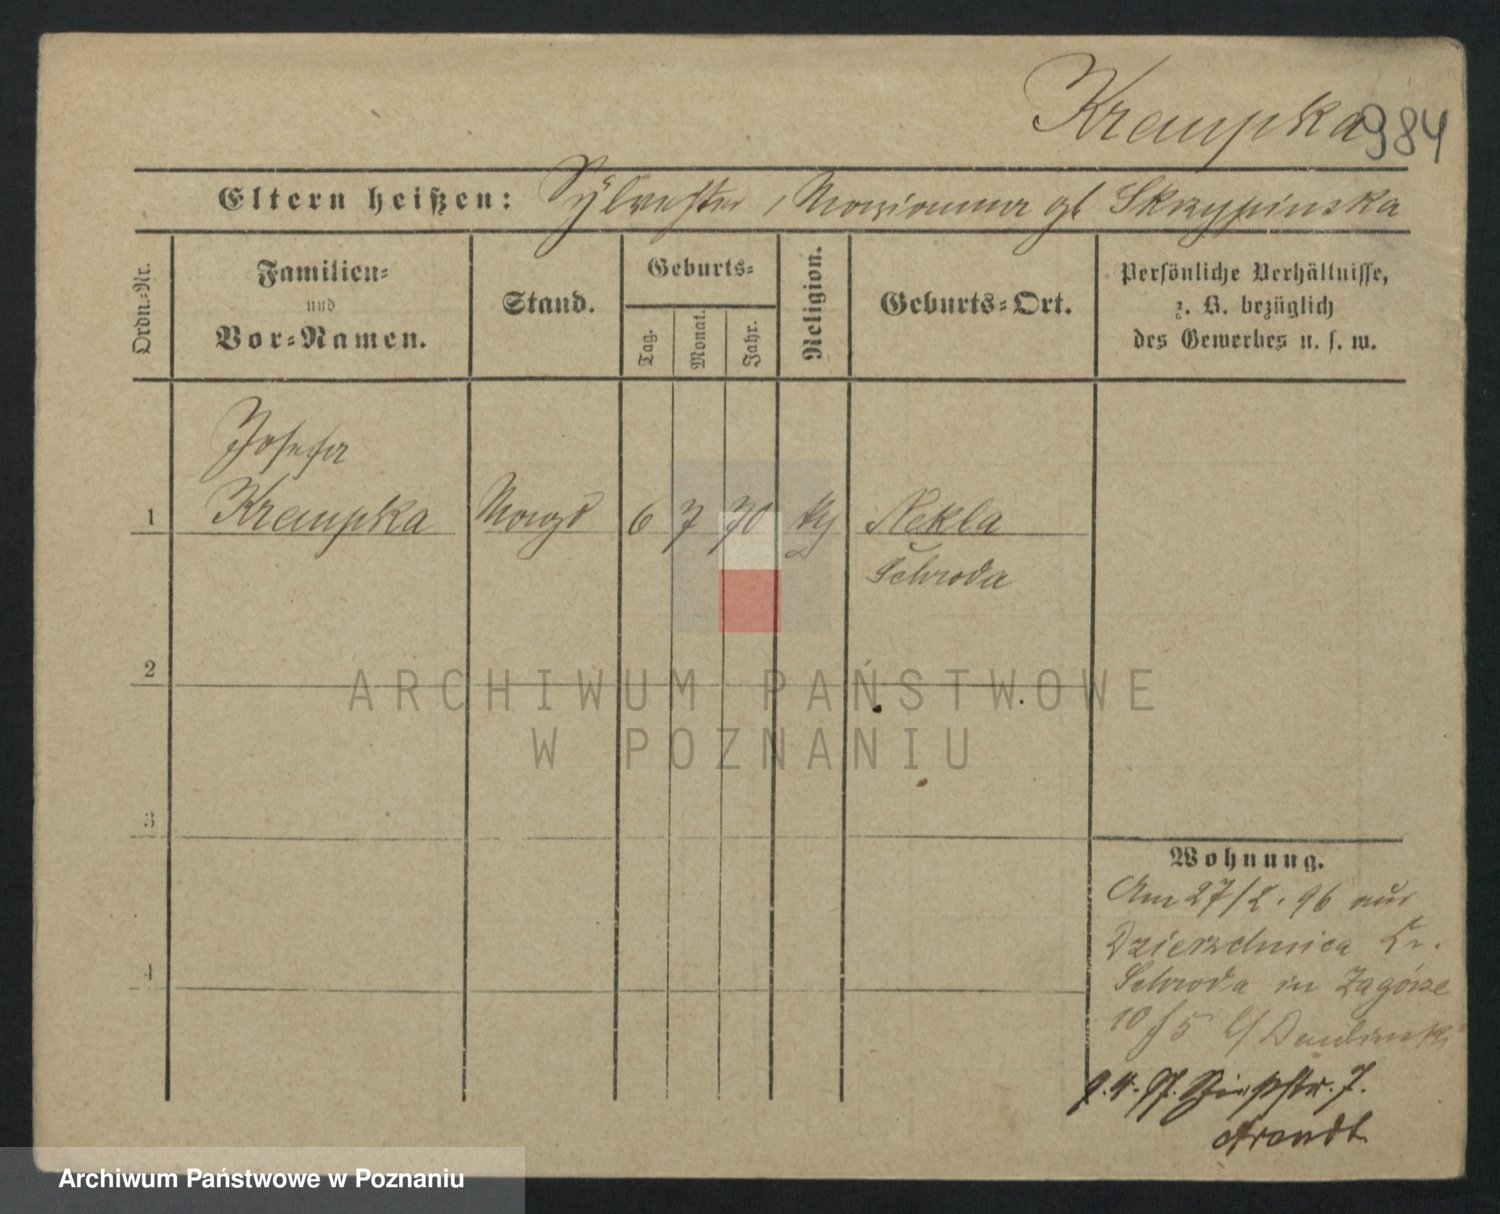 Krempka 984
Eltern heißen: Sylvester, Marianna gb Skrzypinska
Ordn.-Nr.
Familien-
und
Vor-Namen.
Stand.
Geburts-
Tag.
Monat.
Jahr.
Religion.
Geburts-Ort.
Persönliche Verhältnisse,
z. B. bezüglich
des Gewerbes u. s. w.
Josefa
1 Krempka Magd 6 7 70 Nekla
Schroda
2
ARCHIWUM PAŃSTWOWE
W POZNANIU
3
Wohnung.
Am 27/2. 96 aus
Dzierzchnica Kr.
4 Schroda in Zagórze
10 f 5 b/
7.
Arendt
Archiwum Państwowe w Poznaniu